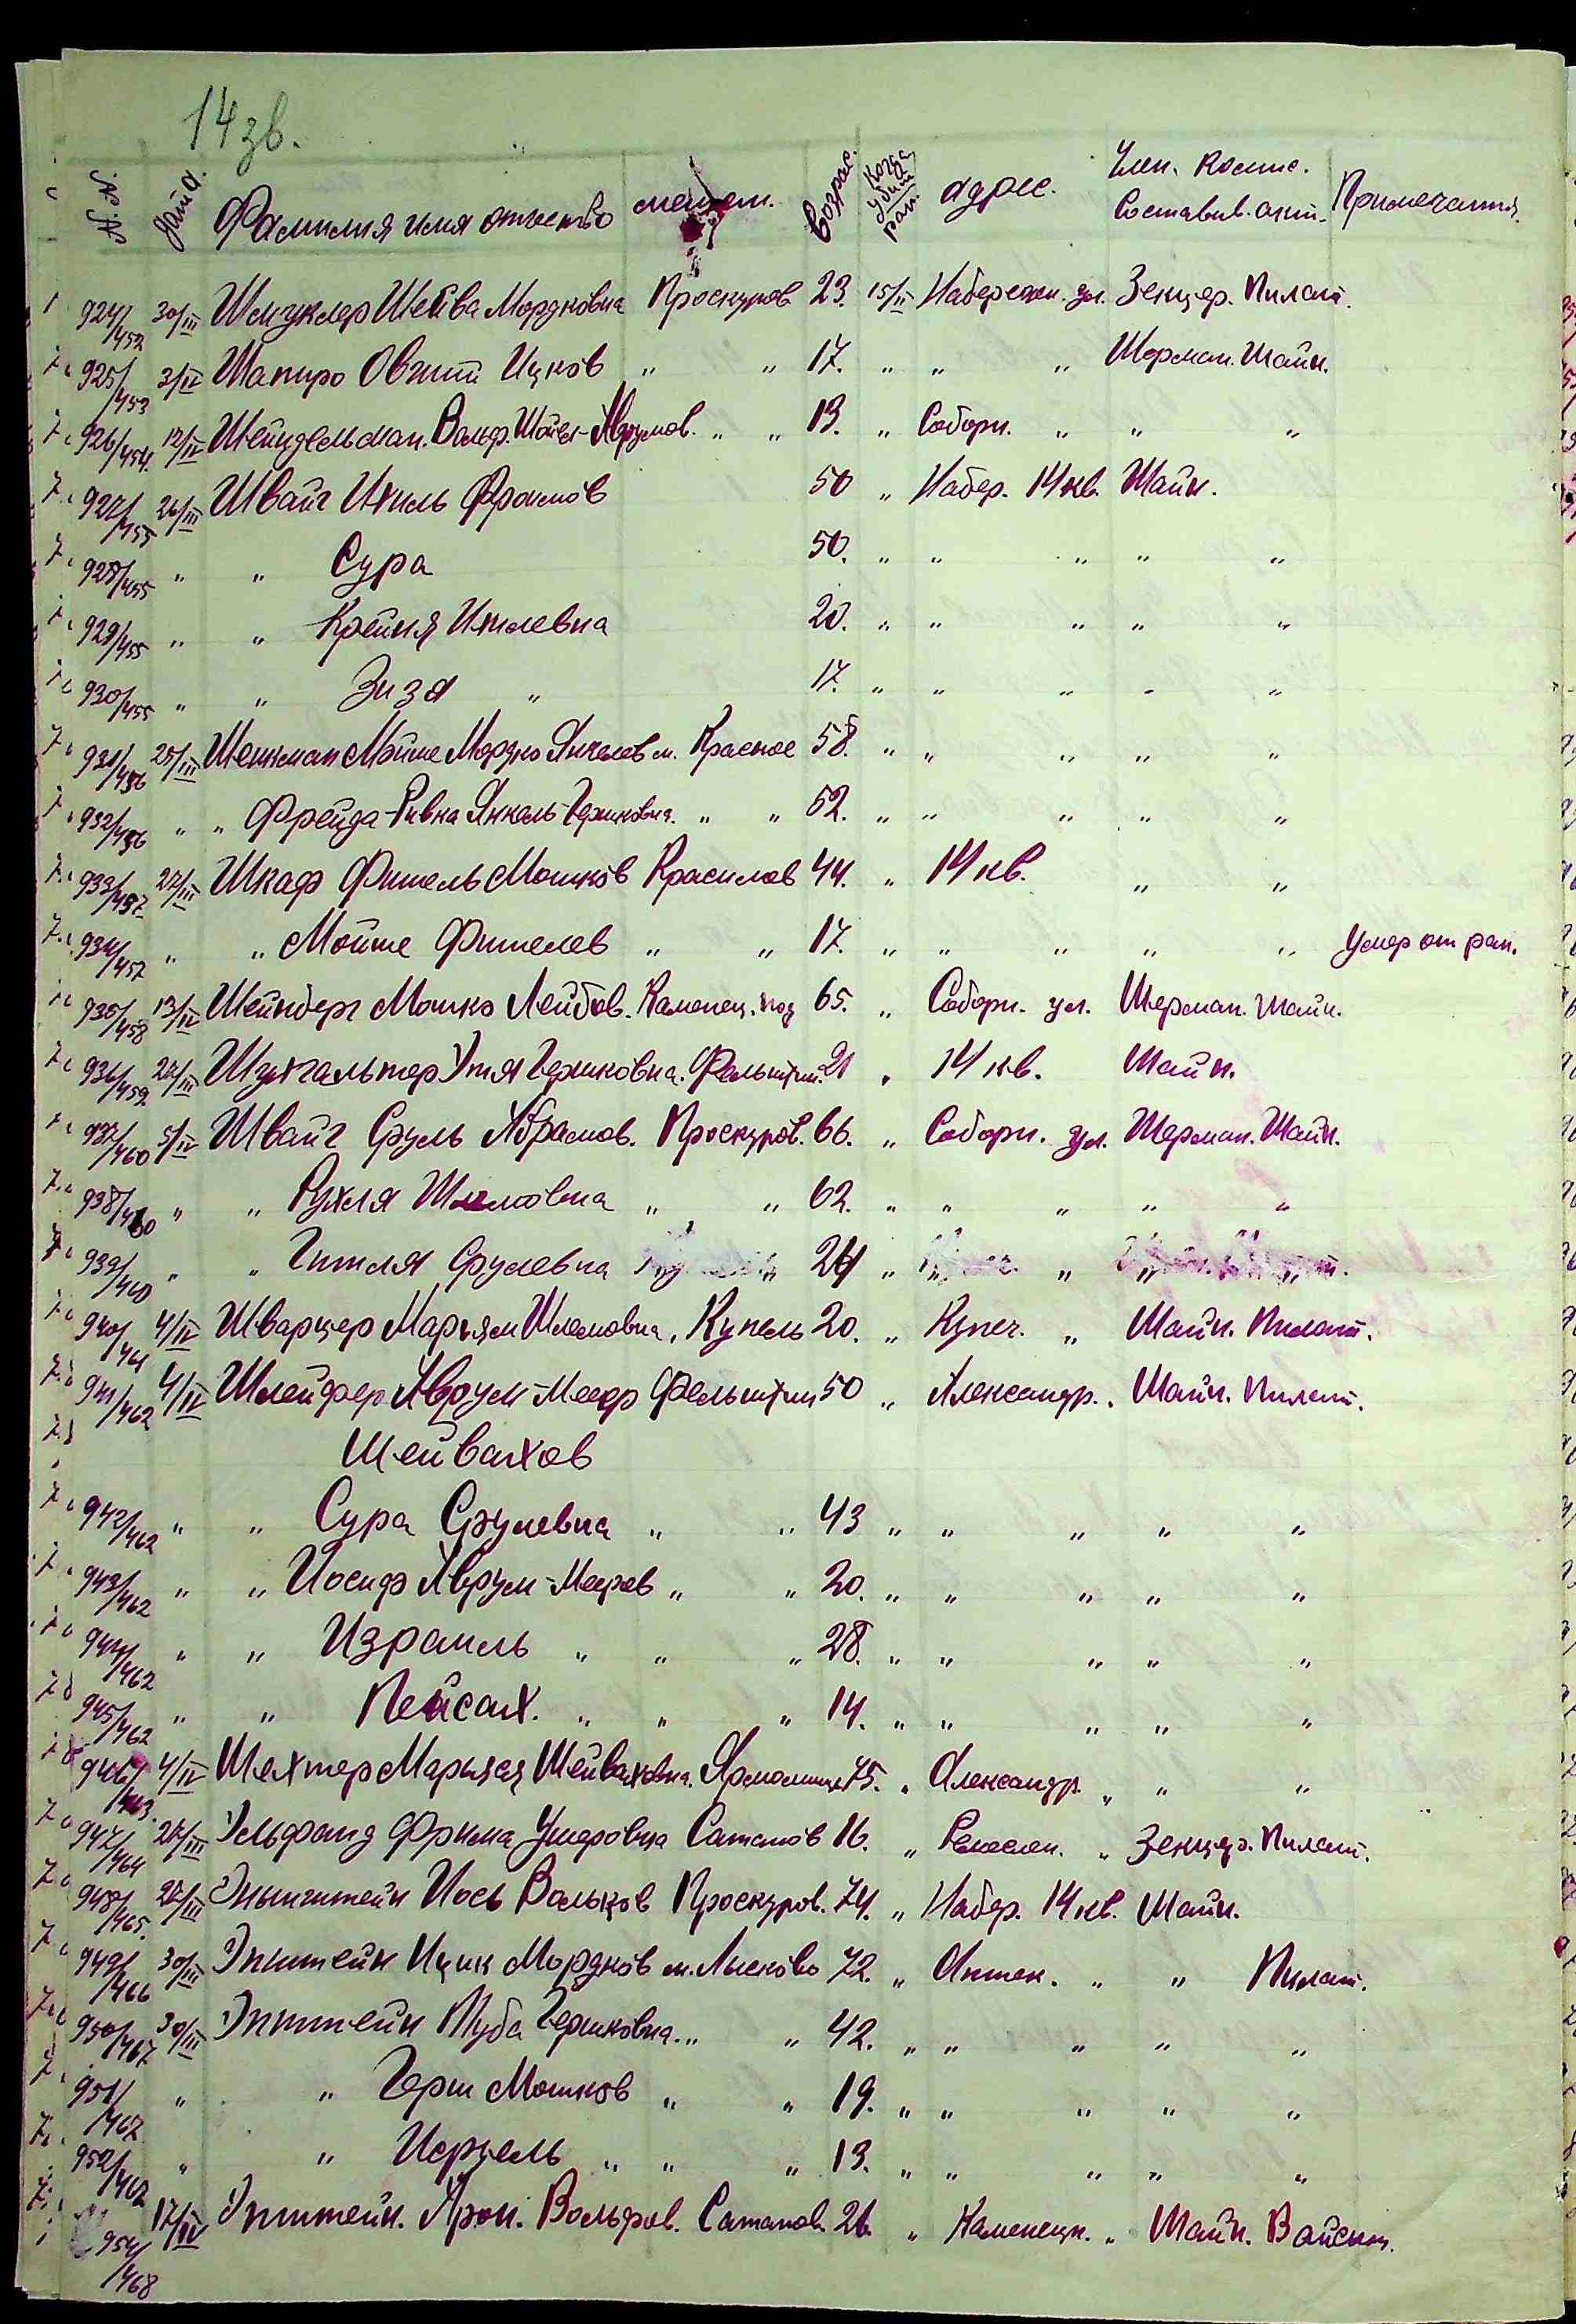 14 зв.
№№ дата. Фамилия имя отчество местн. возрас. Когда убит ран. адрес. Член. Комис. Составив. акт. Примечания.
924/452 30/III Шмуклер Шейва Мордковна Проскуров 23. 15/II Набережн. ул. Зенцер. Пилат.
925/453 3/IV Шапиро Овший Ицков " " 17. " " " Шерман. Шайн.
926/454 12/IV Шейндельман. Вольф. Шойел-Аврумов. " " 13. " Соборн. " " "
927/455 26/III Швайг Ихиль Фроимов 50 " Набер. 14 кв. Шайн.
928/455 " " Сура 50. " " " " "
929/455 " " Крейня Ихилевна 20. " " " " "
930/455 " " Зизя " 17. " " " " "
931/456 25/III Шенкман Мойше Мордко Янкелев м. Красное 58. " " " " "
932/456 " " Фрейда-Ривка Янкель-Гершковна. " " 52. " " " " "
933/457 27/III Шкаф Фишель Мошков Красилов 44. " 14 кв. " "
934/457 " " Мойше Фишелев " " 17. " " " " " Умер от ран.
935/458 13/IV Шейнберг Мошко Лейбов. Каменец. под 65. " Соборн. ул. Шерман. Шайн.
936/459 26/III Шухгальтер Этя Гершковна. Фельштин. 21 " 14 кв. Шайн.
937/460 5/IV Швайг Сруль Абрамов. Проскуров. 66. " Соборн. ул. Шерман. Шайн.
938/460 " " Рухля Шлемовна " " 62. " " " " "
939/460 " " Гитля Срулевна " 24 " " " " "
940/461 4/IV Шварцер Марьям Шлемовна, Купель 20. " Купеч. " Шайн. Пилат.
941/462 4/IV Шлейфер Аврум-Меер Фельштин 50 " Александр. " Шайн. Пилат.
Шейвахов
942/462 " " Сура Срулевна " " 43 " " " " "
943/462 " " Иосиф Аврум-Мееров " " 20. " " " " "
944/462 " " Израиль " " " 28. " " " " "
945/462 " " Пейсах. " " " 14. " " " " "
946/463. 4/IV Шехтер Марьяся Шейваховна. Ярмолинцы 75. " Александр. " " "
947/464 26/III Эльфанд Фрима Ушеровна Сатанов 16. " Ремеслен. " Зенцер. Пилат.
948/465. 26/III Эпштейн Иось Вольков Проскуров. 74. " Набер. 14 кв. Шайн.
949/466 30/III Эпштейн Ицик Мордков м. Лысково 72. " Аптек. " " Пилат.
950/467 30/III Эпштейн Туба Гершковна. " " 42. " " " " "
951/467 " " Герш Мошков " " 19. " " " " "
952/467 " " Исруель " " " 13. " " " " "
954/468 17/IV Эпштейн. Арон. Вольфов. Сатанов. 26. " Каменецк. " Шайн. Вайсшт.